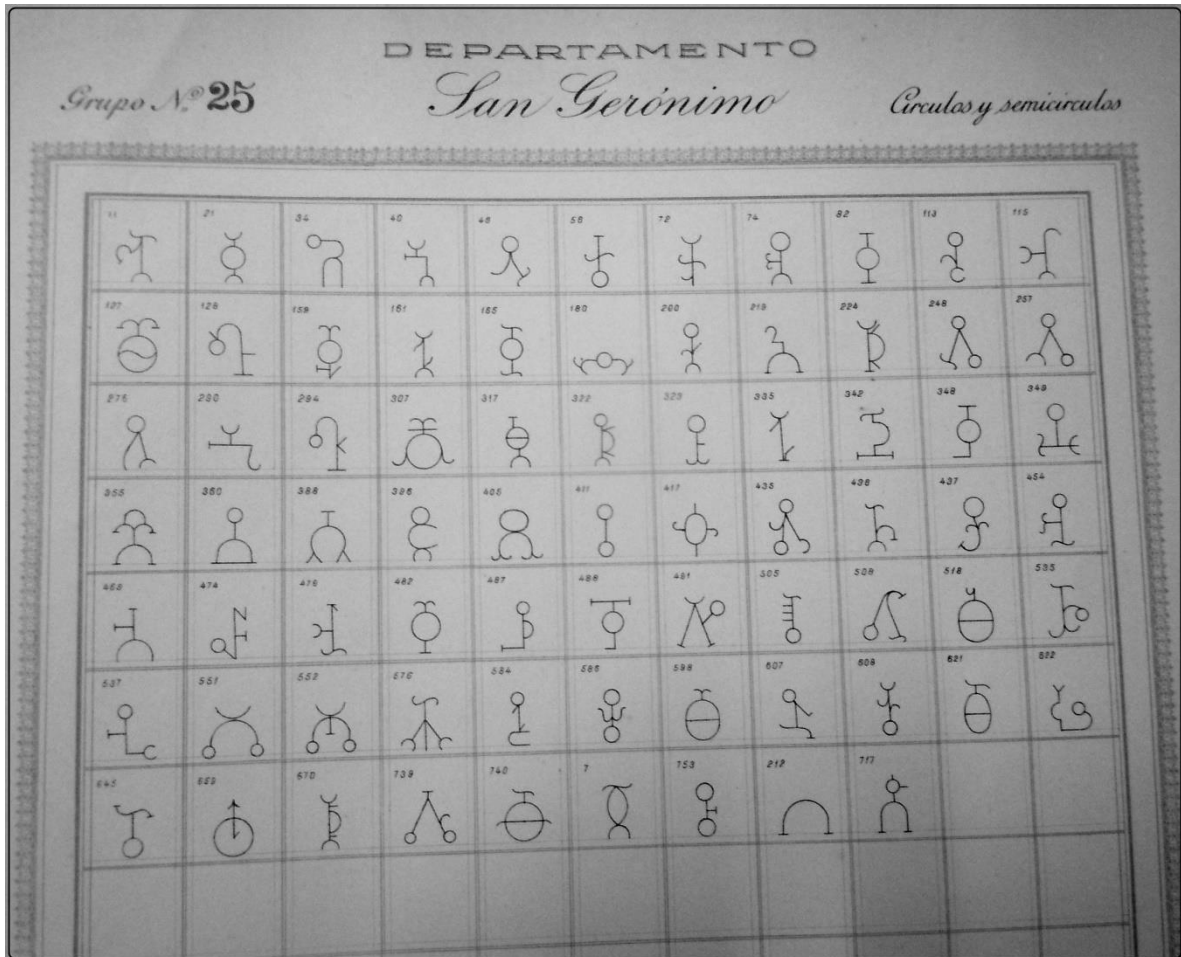 DEPARTAMENTO
Grupo N.º 25 San Gerónimo Círculos y semicírculos
11 21 34 40 48 56 72 74 82 113 115
127 128 159 161 165 180 200 219 224 248 257
276 290 294 307 317 322 323 335 342 348 349
355 380 388 396 405 411 417 435 436 437 454
463 474 476 482 487 488 491 505 509 518 535
537 551 552 576 584 585 598 607 609 621 622
645 659 670 739 740 7 753 212 717